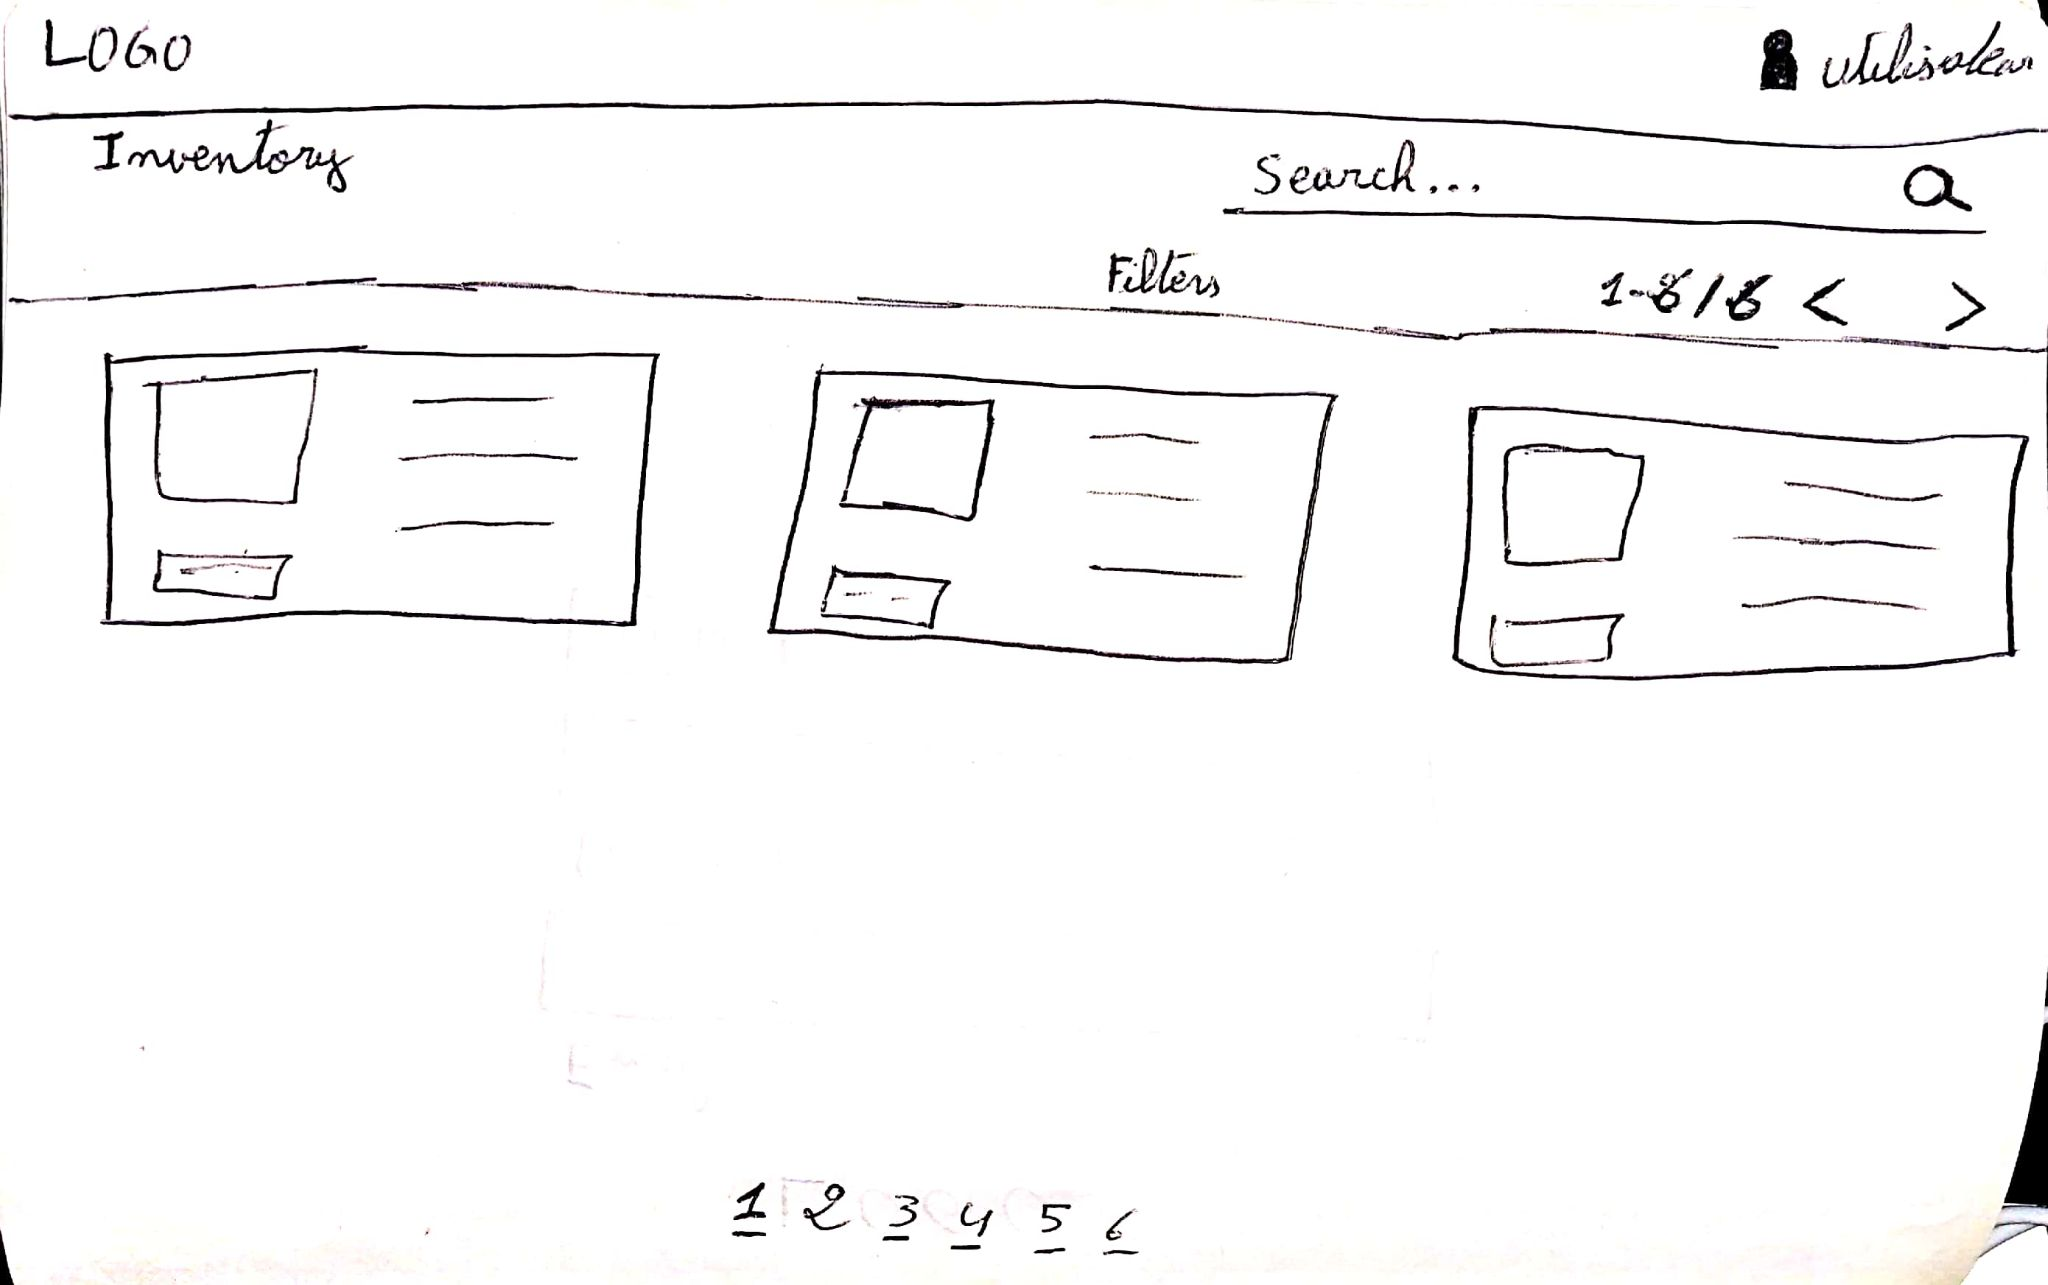 LOGO
utilisateur
Inventory
Search...
Filters
1-6/6 < >
1 2 3 4 5 6